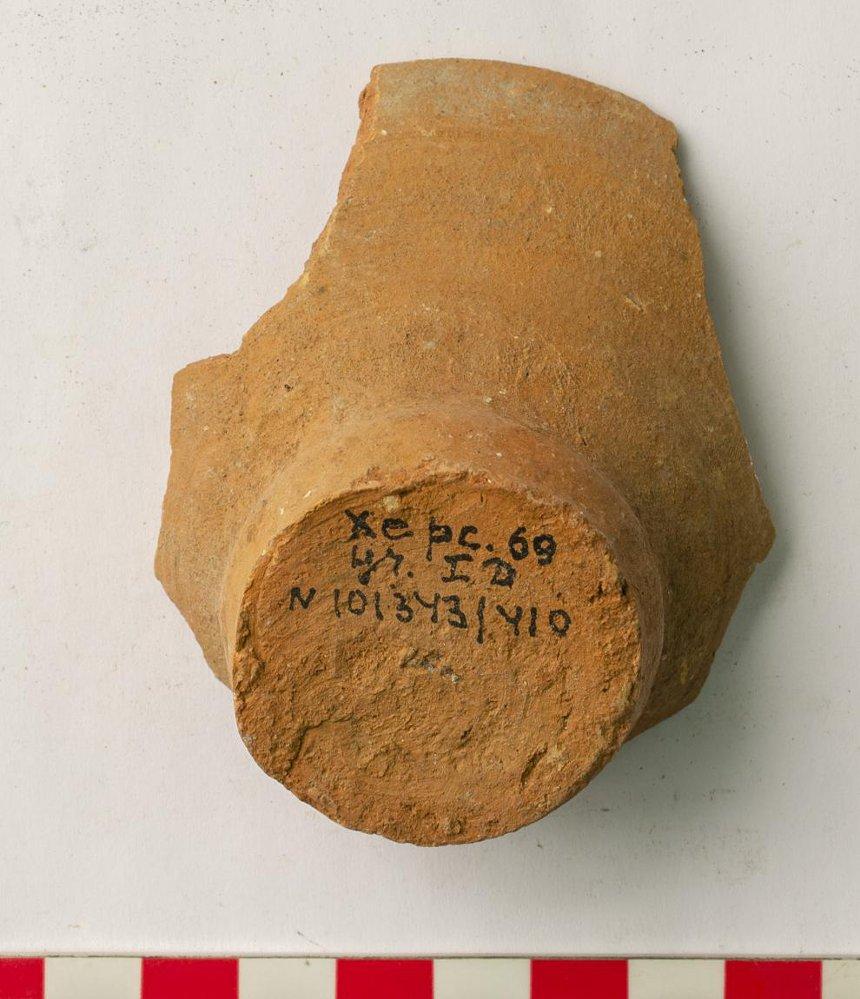 Херс. 69
уч. I В
N 101343/410